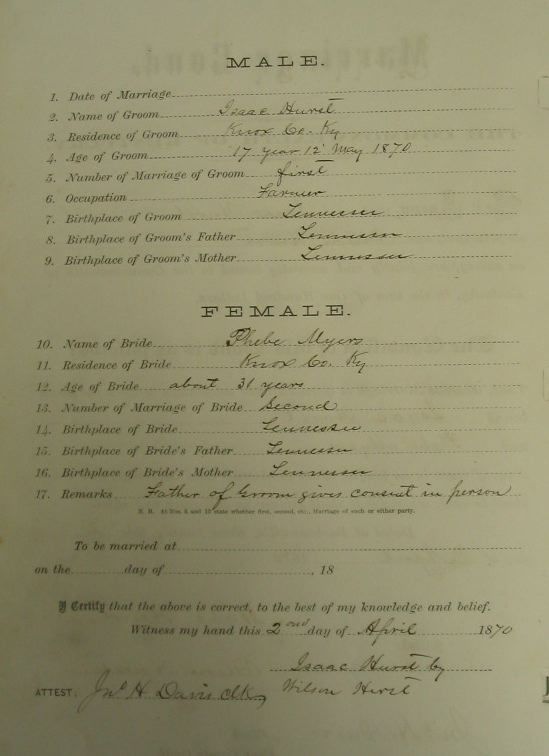 MALE.
1. Date of Marriage
2. Name of Groom Isaac Hurst
3. Residence of Groom Knox Co. Ky
4. Age of Groom 17 year 12 May 1870
5. Number of Marriage of Groom first
6. Occupation Farmer
7. Birthplace of Groom Tennessee
8. Birthplace of Groom's Father Tennessee
9. Birthplace of Groom's Mother Tennessee
FEMALE.
10. Name of Bride Phebe Myers
11. Residence of Bride Knox Co. Ky
12. Age of Bride about 31 years
13. Number of Marriage of Bride Second
14. Birthplace of Bride Tennessee
15. Birthplace of Bride's Father Tennessee
16. Birthplace of Bride's Mother Tennessee
17. Remarks Father of Groom gives consent in person
N. B. At Nos. 5 and 13 state whether first, second, etc., Marriage of each or either party.
To be married at
on the day of , 18
I Certify that the above is correct, to the best of my knowledge and belief.
Witness my hand this 2nd day of April 1870
Isaac Hurst by
ATTEST: Jno H Davis clk, Wilson Hurst